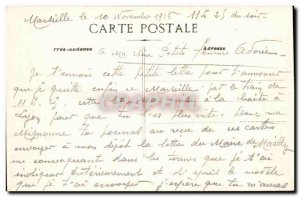 Marseille le 10 Novembre 1915 11h 25 du soir
CARTE POSTALE
Correspondance
Adresse
a Ma Petite femme Adorée
Je t'envoie cette petite lettre pour t'annoncer
que je quitte enfin ce Marseille par le train de
cette à la boite à
Lyon pour que tu plus vite. Donc ma
Mignonne tu pourras au reçu de ces cartes
envoyer à mon dépôt la lettre du Maire de
me convoquant dans les termes que je t'ai
indiqué et d'après le modèle
que je t'ai envoyé j'espère que tu m'auras